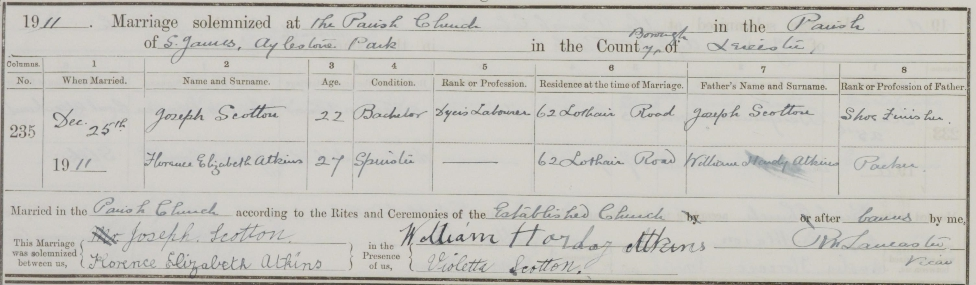 1911. Marriage solemnized at the Parish Church in the Parish
of S. James, Aylestone Park in the County of Borough Leicester
Columns. 1 2 3 4 5 6 7 8
No. When Married. Name and Surname. Age. Condition. Rank or Profession. Residence at the time of Marriage. Father's Name and Surname. Rank or Profession of Father.
235 Dec. 25th Joseph Scotton 22 Bachelor Dyer's Labourer 62 Lothair Road Joseph Scotton Shoe Finisher.
1911 Florence Elizabeth Atkins 27 Spinster — 62 Lothair Road William Hardy Atkins Packer.
Married in the Parish Church according to the Rites and Ceremonies of the Established Church by or after banns by me,
This Marriage was solemnized between us, Joseph. Scotton. in the Presence of us, William Hardy Atkins Lancaster
Florence Elizabeth Atkins Violetta Scotton. Vicar